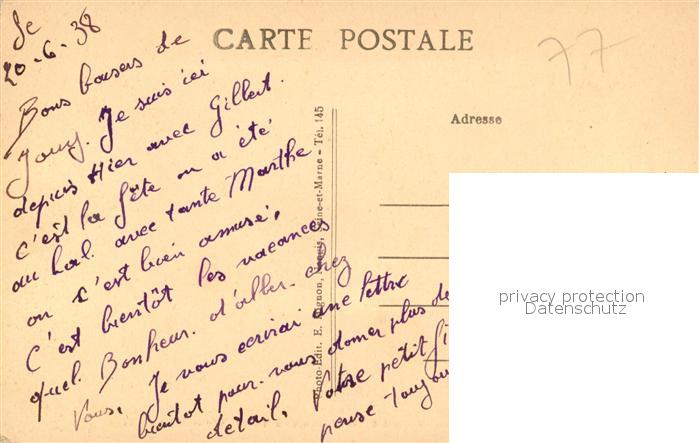 le
20-6-38
CARTE POSTALE
77
Bons baisers de
Jouy. Je suis ici
depuis Hier avec Gilbert.
c'est la fête on a été
au bal avec tante Marthe
on s'est bien amusé,
C'est bientôt les vacances
quel Bonheur d'aller chez
Vous, Je vous ecrirai une lettre
bientot pour vous donner plus de
détail, Votre petit
pense toujou
Adresse
Photo-Edit. E. Mignon, Seine-et-Marne - Tél. 145
privacy protection
Datenschutz